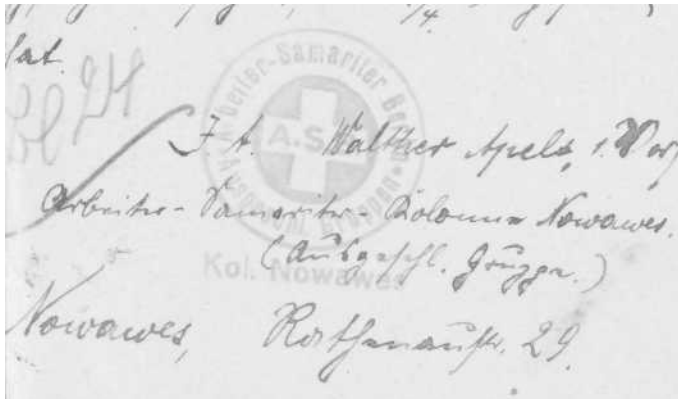 hat.
J. A. Walther Apelt, 1. Vors
Arbeiter-Samariter-Kolonne Nowawes.
(Ausgeschl. Gruppe.)
Nowawes, Rathenaustr. 29.
Arbeiter-Samariter
A.S.
Kol. Nowawes